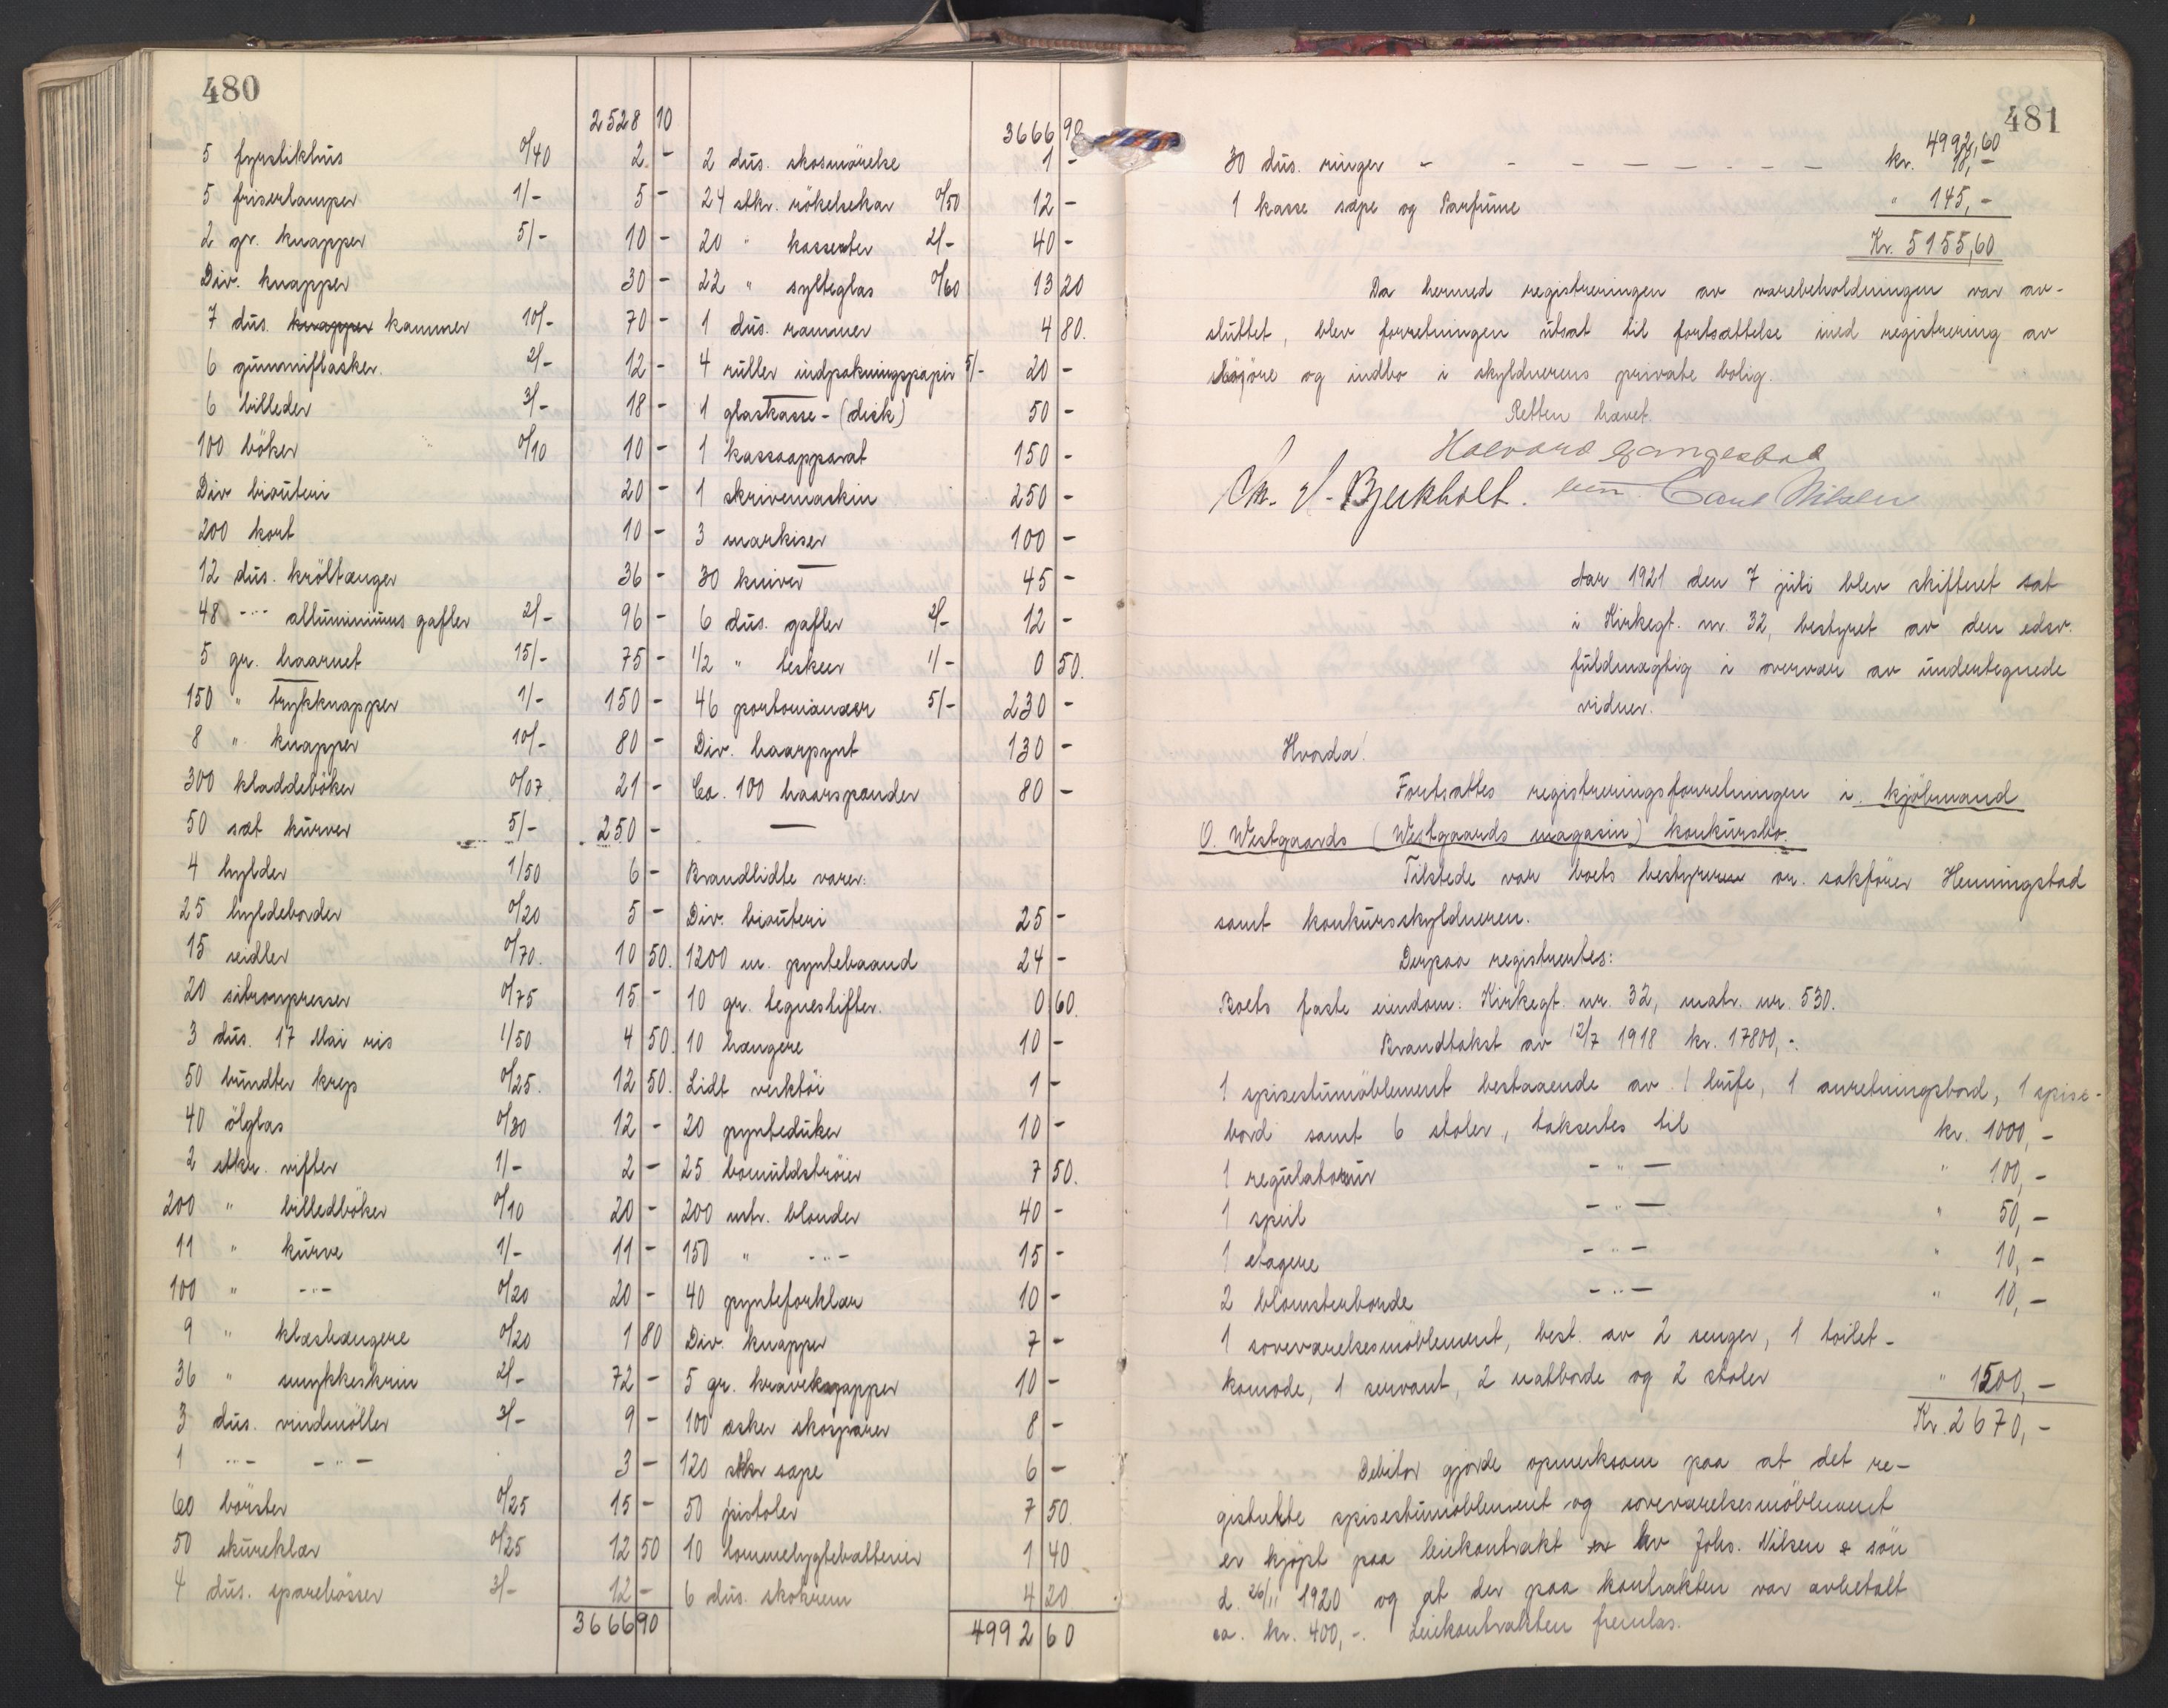 480
2528 10
5 fyrstikhus 0/40 2 -
5 friserlamper 1/- 5 -
2 gr. knapper 5/- 10 -
Div. knapper 30 -
7 dus. knapper kammer 10/- 70 -
6 gummiflasker. 2/- 12 -
6 billeder 3/- 18 -
100 böker 0/10 10 -
Div biouteri 20 -
200 kort 10 -
12 dus. kröltænger 36 -
48 -"- alluminiums gafler 2/- 96 -
5 gr. haarnet 15/- 75 -
150 " trykknapper 1/- 150 -
8 " knapper 10/- 80 -
300 kladdeböker 0/07 21 -
50 sæt kurver 5/- 250 -
4 hylder 1/50 6 -
25 hyldeborder 0/20 5 -
15 seidler 0/70. 10 50.
20 sitronpresser 0/75 15 -
3 dus. 17 Mai ris 1/50 4 50.
50 bundter krep 0/25. 12 50.
40 ölglas 0/30 12 -
2 stkr. rifler 1/- 2 -
200 " billedböker 0/10 20 -
11 " kurve 1/- 11 -
100 " -"- 0/20 20 -
9 " klæshængere 0/20 1 80
36 " smykkeskrin 2/- 72 -
3 dus. vindmöller 3/- 9 -
1 -"- -"- 3 -
60 börster 0/25 15 -
50 skureklær 0/25 12 50
4 dus. sparebösser 3/- 12 -
3666 90
3666 90
2 dus. skosmörelse 1 -
24 stkr. rökelsekar 0/50 12 -
20 " kasserter 2/- 40 -
22 " sylteglas 0/60 13 20
1 dus. rammer 4 80.
4 ruller indpakningspapir 5/- 20 -
1 glaskasse - (disk) 50 -
1 kassaapparat 150 -
1 skrivemaskin 250 -
3 markiser 100 -
30 kniver 45 -
6 dus. gafler 2/- 12 -
1/2 " teskeer 1/- 0 50.
46 portomanæer 5/- 230 -
Div. haarpynt 130 -
Ca. 100 haarspænder 80 -
Brandlidte varer:
Div. biouteri 25 -
1200 m. pyntebaand 24 -
10 gr. tegnestifter. 0 60.
10 hængere 10 -
Lidt verktöi 1 -
20 pynteduker 10 -
25 bomuldströier 7 50.
200 mtr. blonder 40 -
150 " -"- 15 -
40 pynteforklær 10 -
Div. knapper 7 -
5 gr. kraveknapper 10 -
100 æsker skosparer 8 -
120 stkr sæpe 6 -
50 pistoler 7 50
10 lommelygtebatterier 1 40
6 dus. skokrem 4 20
4992 60
481
4992,60
30 dus. ringer - - - - - - - - kr. 18,-
1 kasse sæpe og Parfume " 145,-
Kr. 5155,60
Da hermed registreringen av varebeholdningen var av-
sluttet, blev forretningen utsat til fortsættelse med registrering av
lösöre og indbo i skyldnerens private bolig.
Retten hævet.
Halvard
Chr. S. Bjerkholt. Carl Nilsen
Aar 1921 den 7 juli blev skifteret sat
i Kirkegt. nr. 32, bestyret av den edsv.
fuldmægtig i overvær av undertegnede
vidner.
Hvorda!
Fortsattes registreringsforretningen i kjöbmand
O. Westgaards (Westgaards magasin) konkursbo.
Tilstede var boets bestyrer or. sakförer Henningstad
samt konkursskyldneren.
Derpaa registrertes:
Boets faste eiendom: Kirkegt. nr. 32, matr. nr. 530.
Brandtakst av 12/7 1918 kr. 17800,-.
1 spisestumöblement bestaaende av 1 bufe, 1 anretningsbord, 1 spise-
bord samt 6 stoler, taksertes til kr. 1000,-
1 regulatorur -"- " 100,-
1 speil -"- " 50,-
1 etagere -"- " 10,-
2 blomsterborde -"- " 10,-
1 soveværelsesmöblement, best. av 2 senger, 1 toilet-
komode, 1 servant, 2 natborde og 2 stoler " 1500,-
Kr. 2670,-
Debitor gjorde opmerksom paa at det re-
gistrerte spisestumöblement og soveværelsesmöblement
er kjöpt paa leiekontrakt av Johs. Nilsen & sön
d. 26/11 1920 og at der paa kontrakten var avbetalt
ca. kr. 400,-. Leiekontrakten fremlas.